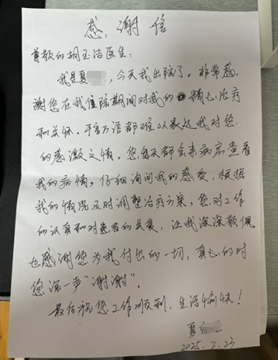 感谢信
尊敬的胡玉洁医生:
我是夏 ,今天我出院了。非常感
谢您在我住院期间对我的 精心治疗
和关怀。千言万语都难以表达我对您
的感激之情。您每天都会来病床查看
我的病情,仔细询问我的感受,根据
我的情况及时调整治疗方案,您对工作
的认真和对患者的关爱,让我深深敬佩
也感谢您为我付出的一切,真心的对
您说一声“谢谢”。
最后祝您工作顺利,生活愉快!
夏
2025.2.23